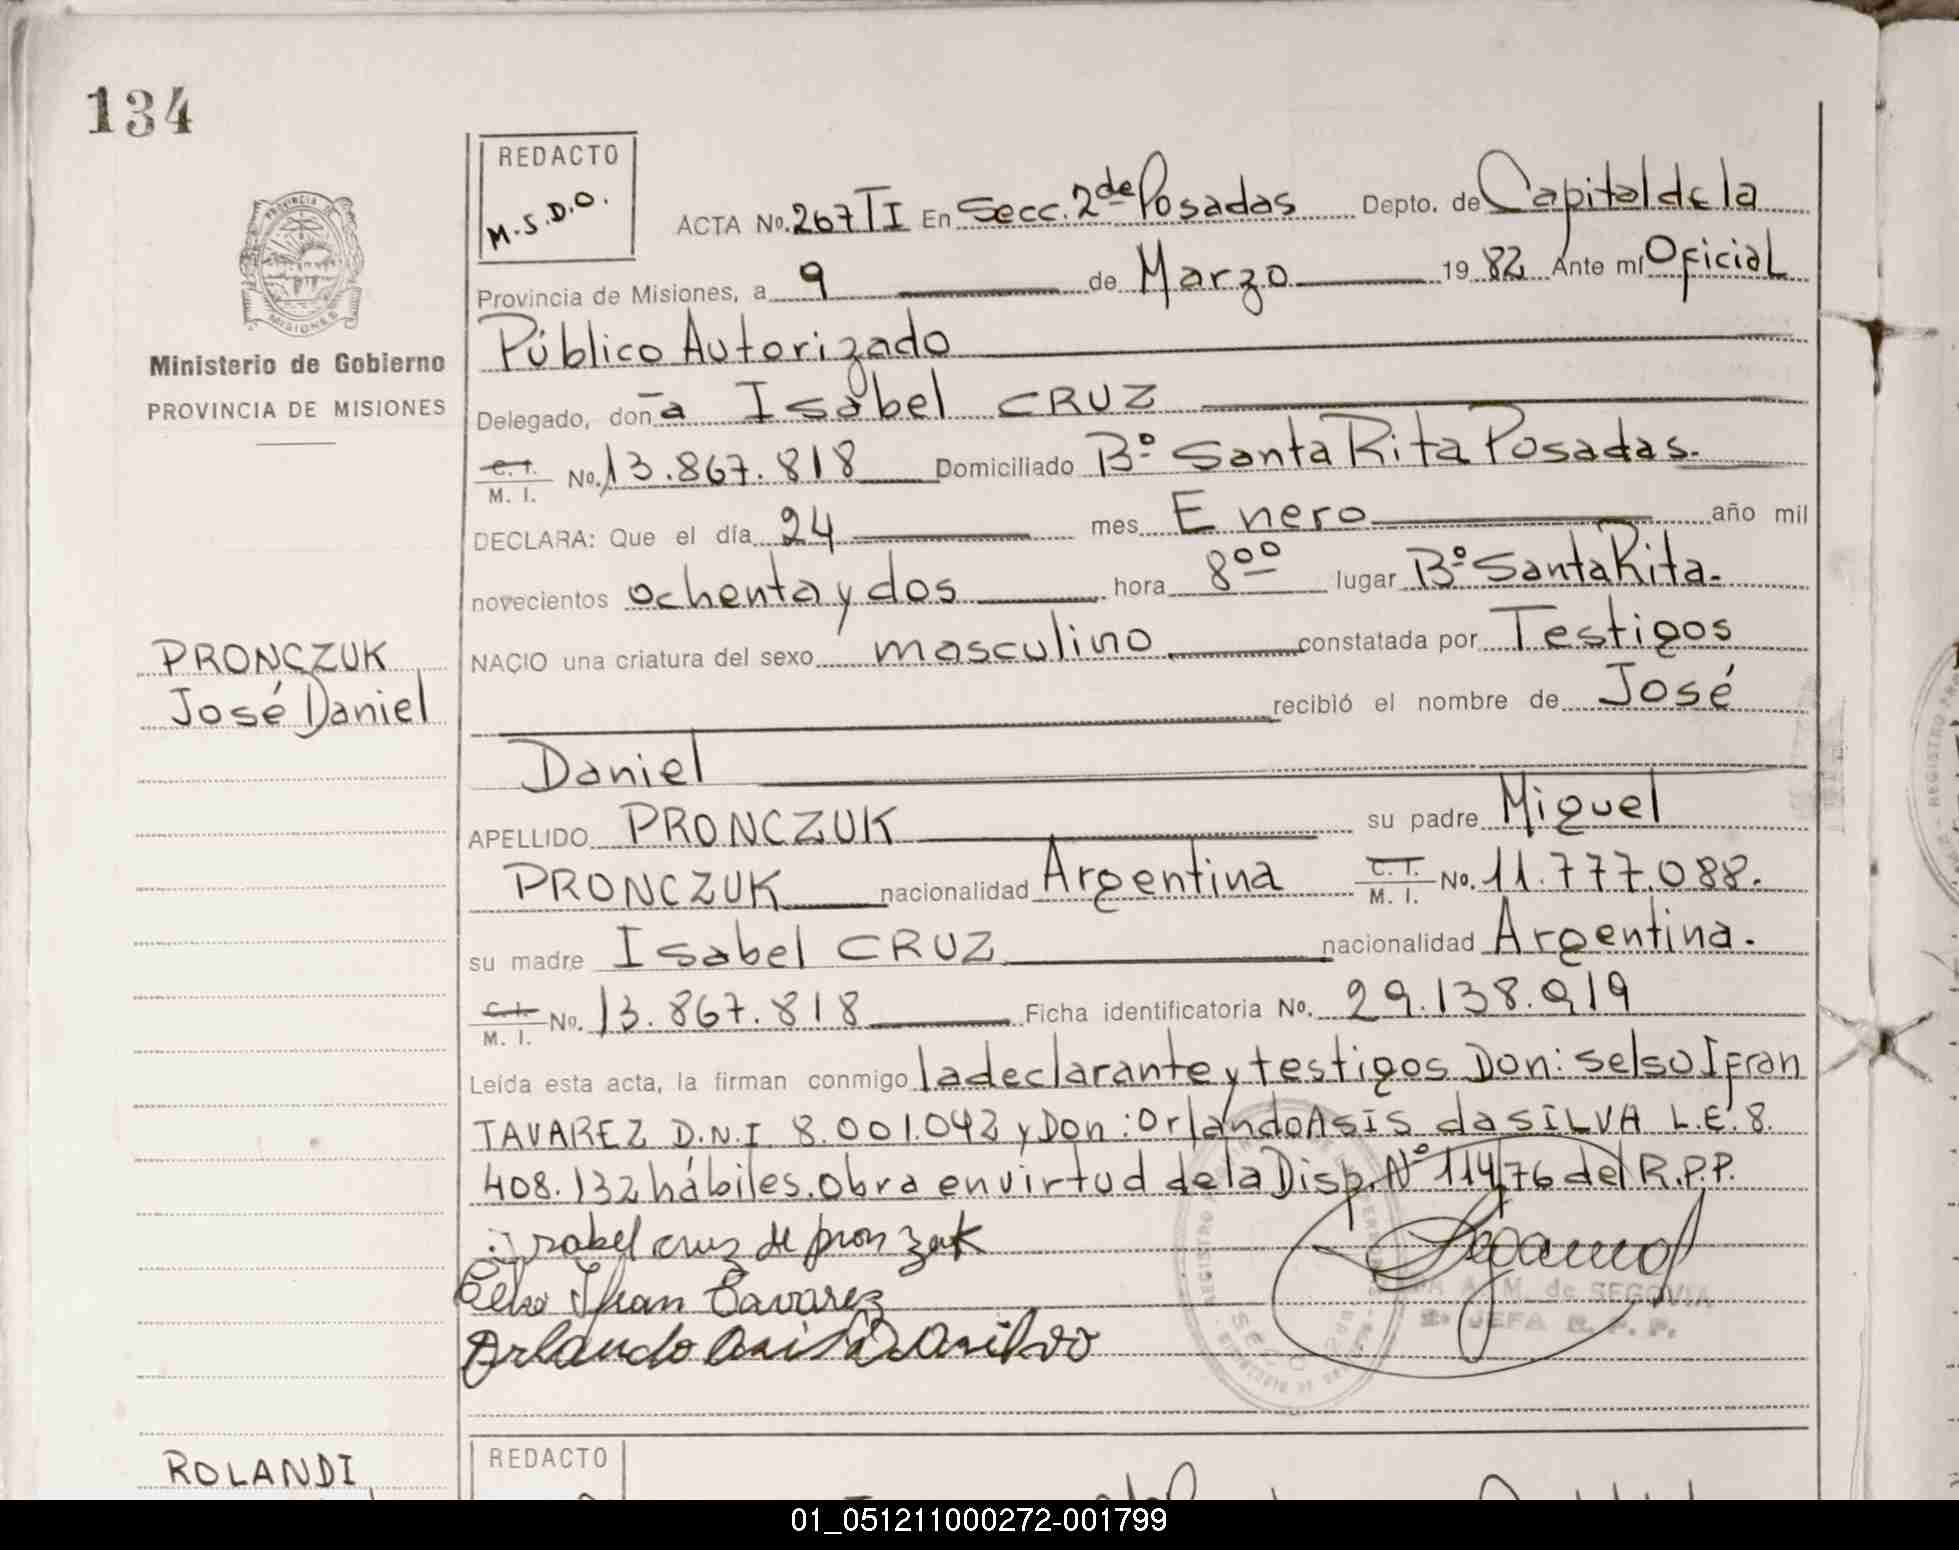 134
REDACTO
M.S.D.O.
ACTA No. 267 TI En Secc. 2da de Posadas Depto. de Capital de la
Provincia de Misiones, a 9 de Marzo 19 82 Ante mí Oficial
Público Autorizado
Ministerio de Gobierno
PROVINCIA DE MISIONES
Delegado, don a Isabel CRUZ
C. I. M. I. No. 13.867.818 Domiciliado Bº Santa Rita Posadas.
DECLARA: Que el día 24 mes Enero año mil
novecientos ochenta y dos hora 8ºº lugar Bº Santa Rita.
PRONCZUK
José Daniel
NACIO una criatura del sexo masculino constatada por Testigos
recibió el nombre de José
Daniel
APELLIDO PRONCZUK su padre Miguel
PRONCZUK nacionalidad Argentina C. I. M. I. No. 11.777.088.
su madre Isabel CRUZ nacionalidad Argentina.
C. I. M. I. No. 13.867.818 Ficha identificatoria No. 29.138.919
Leída esta acta, la firman conmigo la declarante y testigos Don: Selso Ifran
TAVAREZ D.N.I 8.001.042 y Don: Orlando Asis da SILVA L.E. 8.
408.132 hábiles. Obra en virtud de la Disp. Nº 114/76 del R.P.P.
Isabel cruz de pronzuk
Celso Ifran Tavarez
Orlando Asis Da silva
A. M. de SEGOVIA
JEFA R. P. P.
ROLANDI
REDACTO
01_051211000272-001799